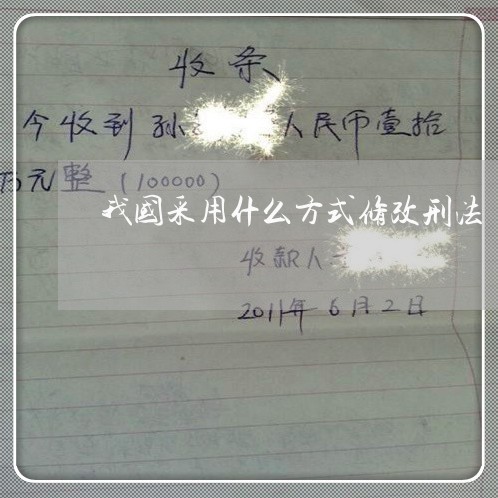 收条
今收到孙 人民币壹拾
万元整（100000）
我国采用什么方式修改刑法
收款人
2011年6月2日